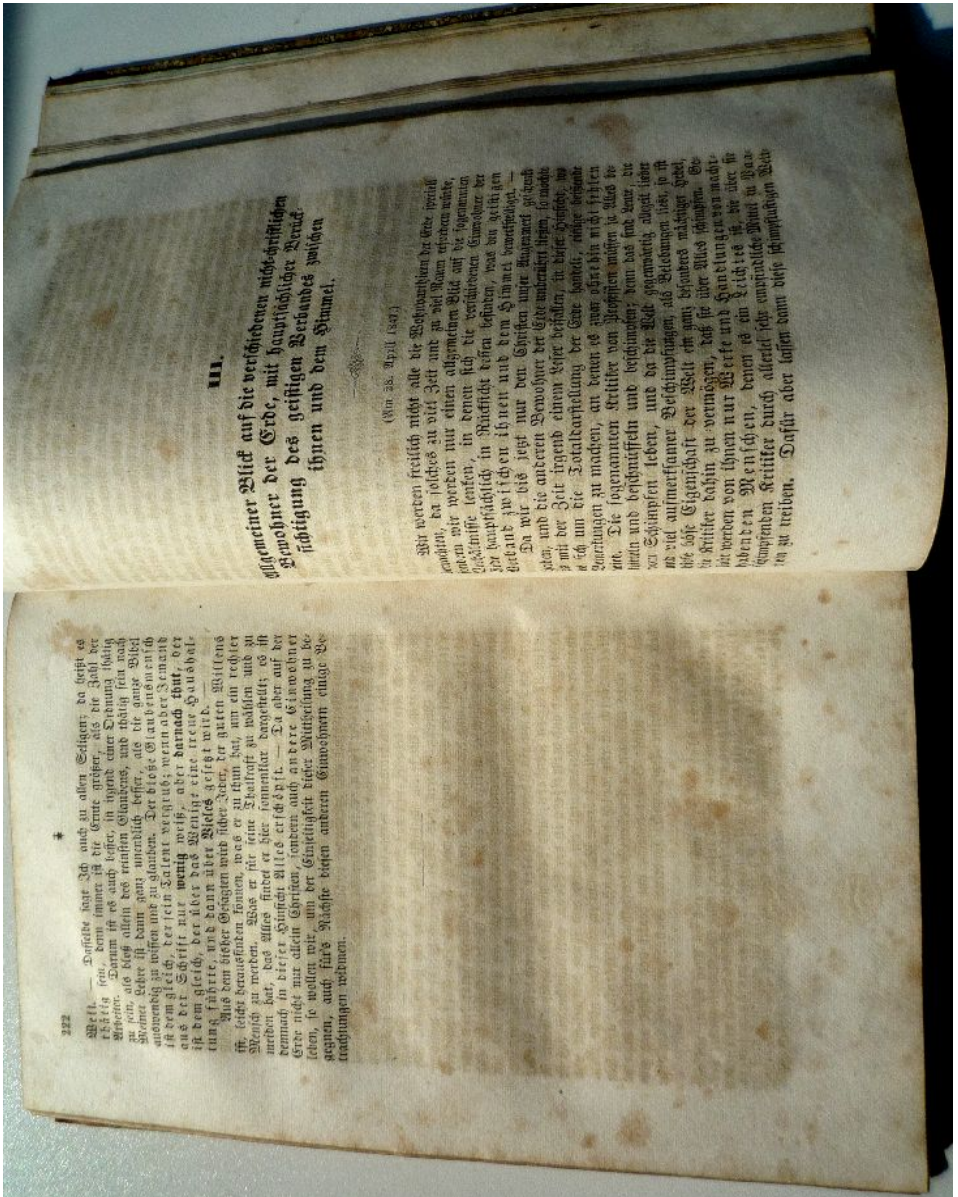 222
Welt. — Dasselbe sage Ich auch zu allen Seligen; da heißt es
thätig sein, denn immer ist die Ernte größer, als die Zahl der
Arbeiter. Darum ist es auch besser, in irgend einer Ordnung thätig
zu sein, als bloß allein des reinsten Glaubens, und thätig sein nach
Meiner Lehre ist dann ganz unendlich besser, als die ganze Bibel
auswendig zu wissen und zu glauben. Der bloße Glaubensmensch
ist dem gleich, der sein Talent vergrub; wenn aber Jemand
aus der Schrift nur wenig weiß, aber darnach thut, der
ist dem gleich, der über das Wenige eine treue Haushal-
tung führte, und dann über Vieles gesetzt wird. —
Aus dem bisher Gesagten wird sicher Jeder, der guten Willens
ist, leicht herausfinden können, was er zu thun hat, um ein rechter
Mensch zu werden. Was er für seine Thatkraft zu wählen und zu
meiden hat, das Alles findet er hier sonnenklar dargestellt; es ist
demnach in dieser Hinsicht Alles erschöpft. — Da aber auf der
Erde nicht nur allein Christen, sondern auch andere Einwohner
leben, so wollen wir, um der Einseitigkeit dieser Mittheilung zu be-
gegnen, auch für's Nächste diesen anderen Einwohnern einige Be-
trachtungen widmen.
III.
Allgemeiner Blick auf die verschiedenen nicht-christlichen
Bewohner der Erde, mit hauptsächlicher Berück-
sichtigung des geistigen Verbandes zwischen
ihnen und dem Himmel.
(Am 28. April 1847.)
Wir werden freilich nicht alle die Wohnparthieen der Erde speciell
da solches zu viel Zeit und zu viel Raum erfordern würde,
sondern wir werden nur einen allgemeinen Blick auf die sogenannten
Verhältnisse lenken, in denen sich die verschiedenen Einwohner der
Erde hauptsächlich in Rücksicht dessen befinden, was den geistigen
Verband zwischen ihnen und dem Himmel bewerkstelliget. —
Da wir bis jetzt nur den Christen unser Augenmerk geschenkt
hatten, und die anderen Bewohner der Erde unberührt ließen, so möchte
mit der Zeit irgend einem Leser beifallen, in dieser Hinsicht, wo
es sich um die Totaldarstellung der Erde handelt, einige beißende
Bemerkungen zu machen, an denen es zwar ohnehin nicht fehlen
wird. Die sogenannten Kritiker von Profession müssen ja Alles be-
kritzeln und beschnüffeln und beschimpfen; denn das sind Leute, die
vom Schimpfen leben, und da die Welt gegenwärtig allzeit lieber
und viel aufmerksamer Beschimpfungen, als Belobungen liest, so ist
diese böse Eigenschaft der Welt ein ganz besonders mächtiger Hebel,
die Kritiker dahin zu vermögen, daß sie über Alles schimpfen. So
wir werden von ihnen nur Werke und Handlungen von macht-
habenden Menschen, denen es ein Leichtes ist, die über sie
schimpfenden Kritiker durch allerlei sehr empfindliche Mittel in Paa-
ren zu treiben. Dafür aber lassen dann diese schimpflustigen Welt-